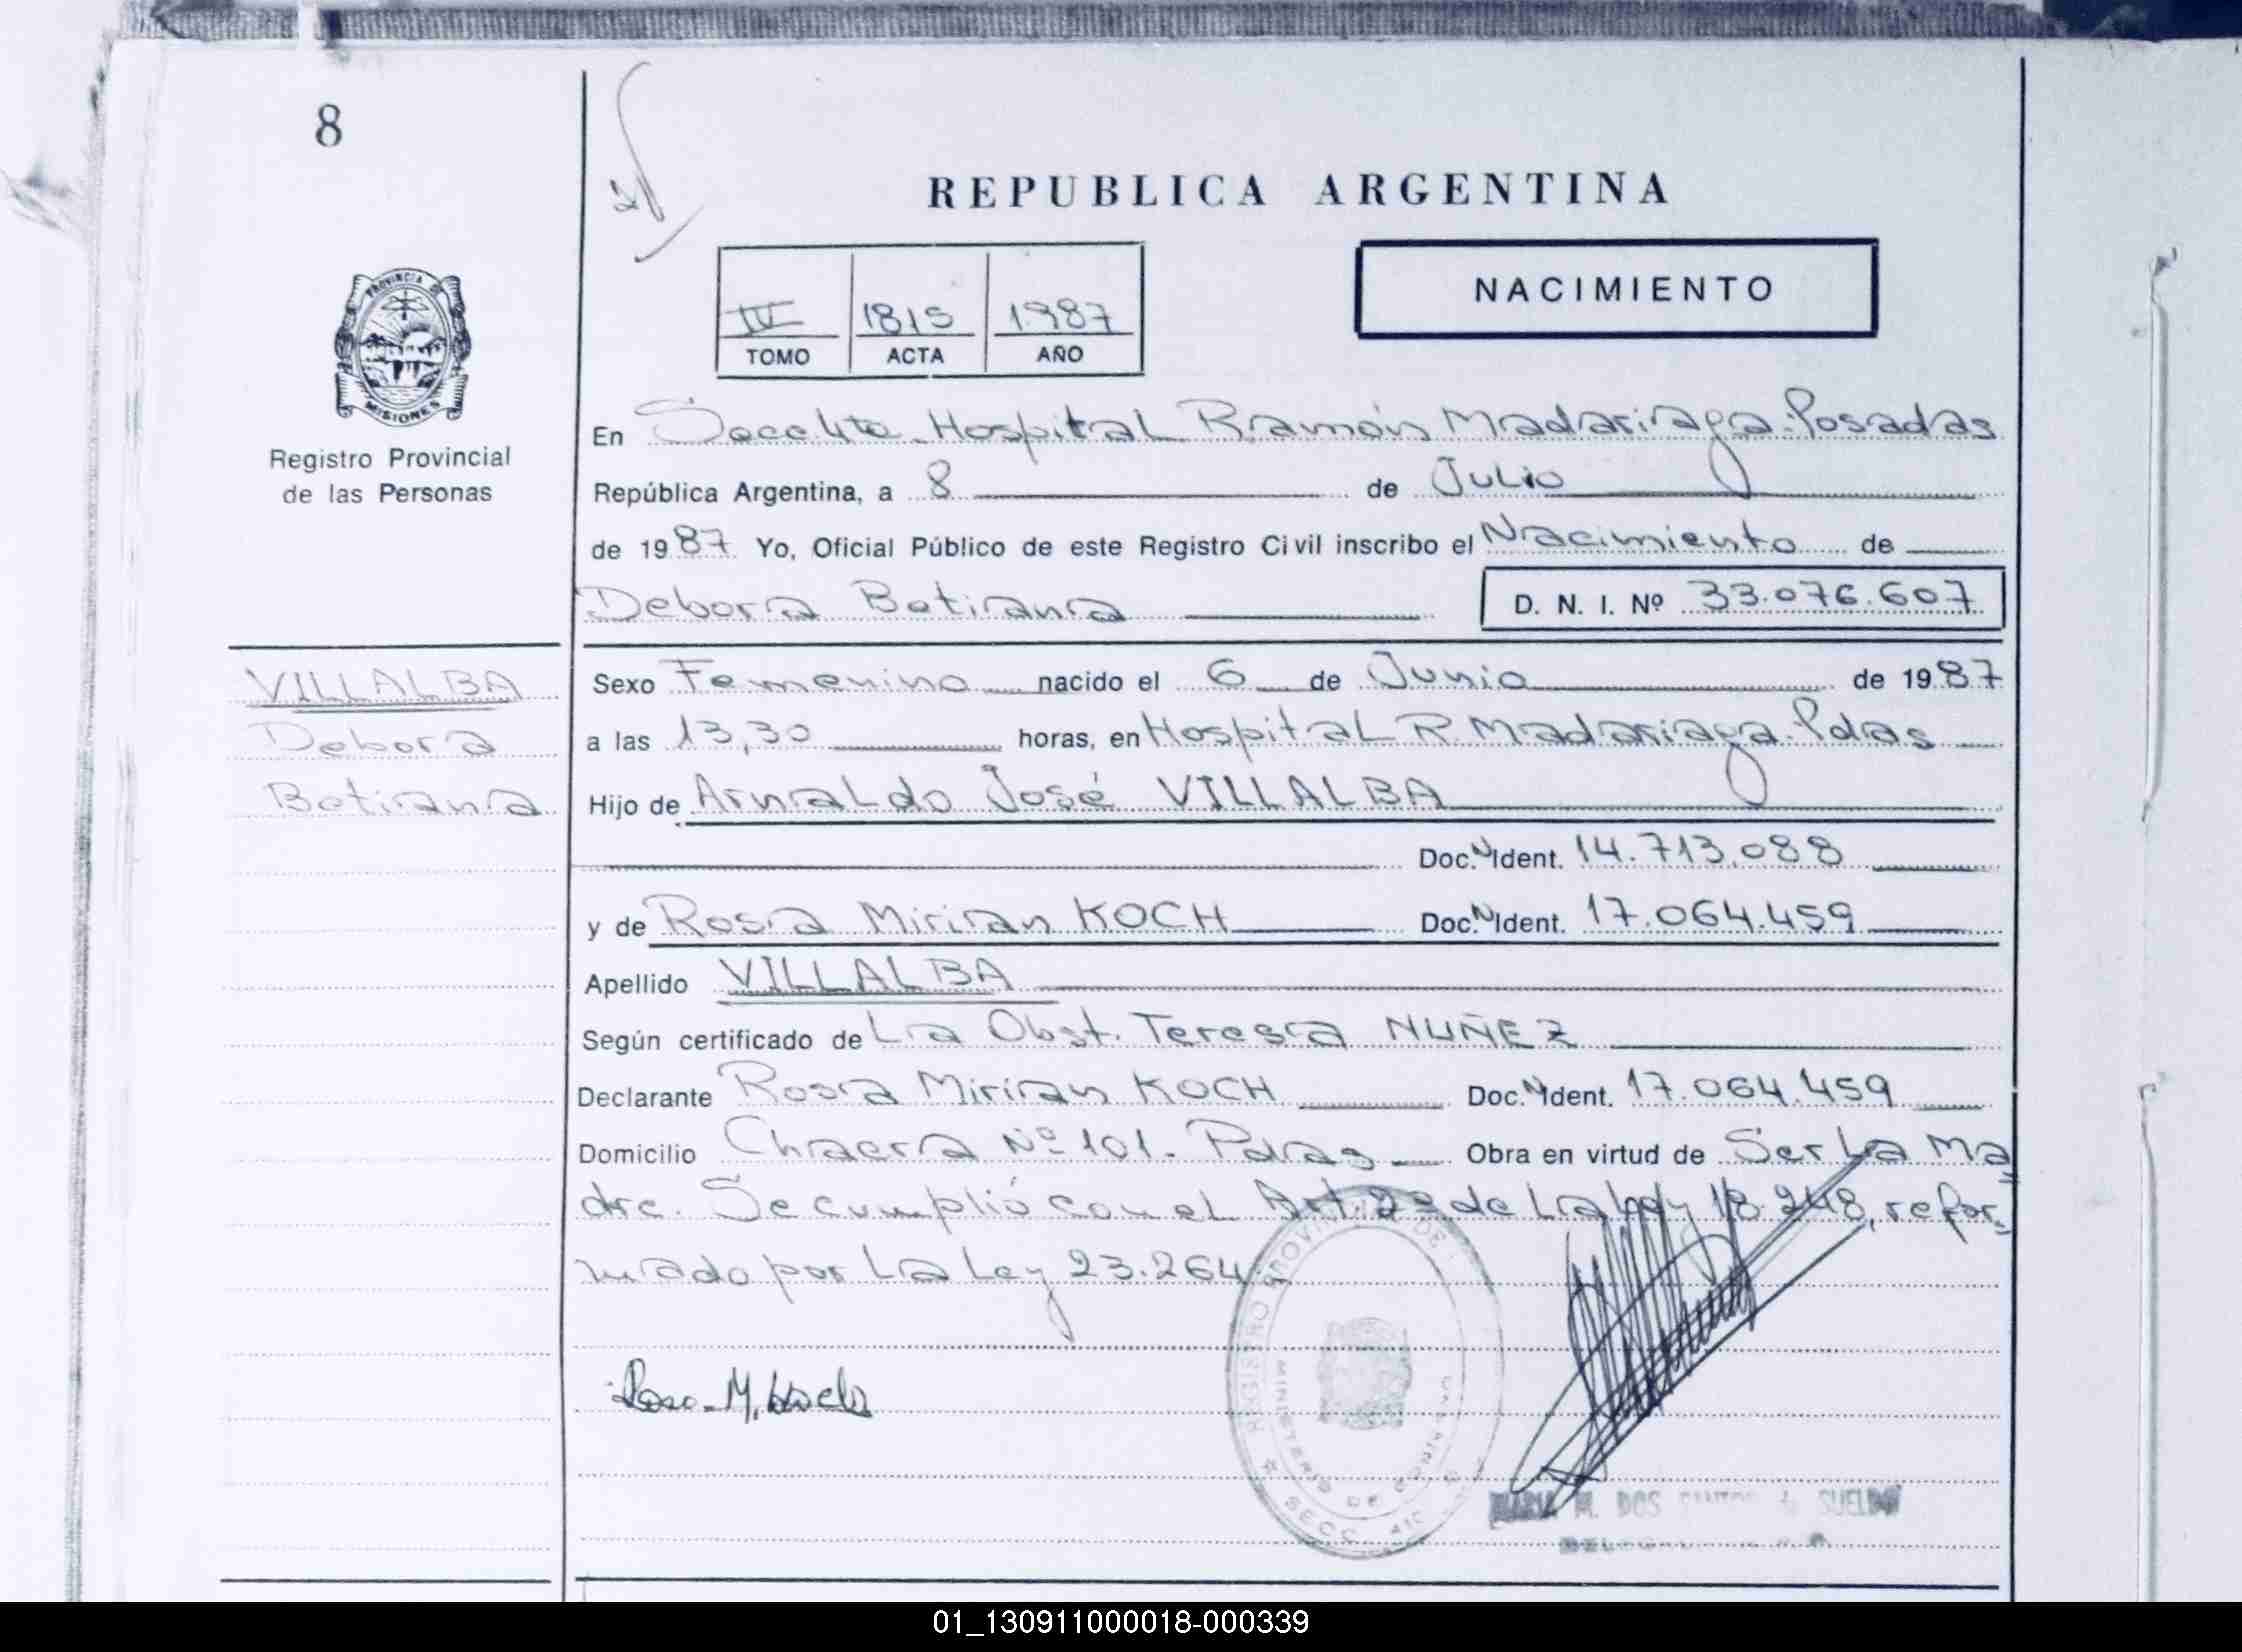 8
REPUBLICA ARGENTINA
NACIMIENTO
IV 1815 1987
TOMO ACTA AÑO
PROVINCIA DE
MISIONES
Registro Provincial
de las Personas
En Secc 4ta. Hospital Ramón Madariaga. Posadas
República Argentina, a 8 de Julio
de 1987 Yo, Oficial Público de este Registro Civil inscribo el Nacimiento de
Debora Betiana D. N. I. Nº 33.076.607
VILLALBA
Debora
Betiana
Sexo Femenino nacido el 6 de Junio de 1987
a las 13,30 horas, en Hospital R. Madariaga. Pdas
Hijo de Arnaldo José VILLALBA
Doc. N Ident. 14.713.088
y de Rosa Mirian KOCH Doc. N Ident. 17.064.459
Apellido VILLALBA
Según certificado de La Obst. Teresa NUÑEZ
Declarante Rosa Mirian KOCH Doc. N Ident. 17.064.459
Domicilio Chacra Nº 101. Pdas Obra en virtud de Ser La Ma
dre. Se cumplió con el Art. 2º de La Ley 18.248, refor
mado por La Ley 23.264
Rosa M. Koch
REGISTRO PROVINCIAL DE
MINISTERIO DE
SECC.
MARIA M. DOS SANTOS de SUELDO
01_130911000018-000339